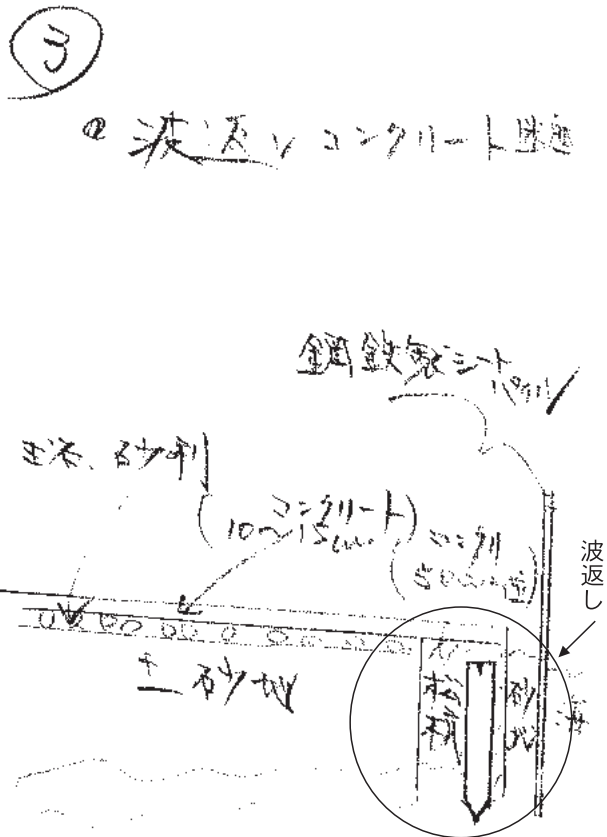 ③
波返しコンクリート
鋼鉄製シート
パイル
玉石、砂利
(コンクリート
10〜15cm)
(コンクリ
50cm
波返し
土砂地
松杭
砂地
海